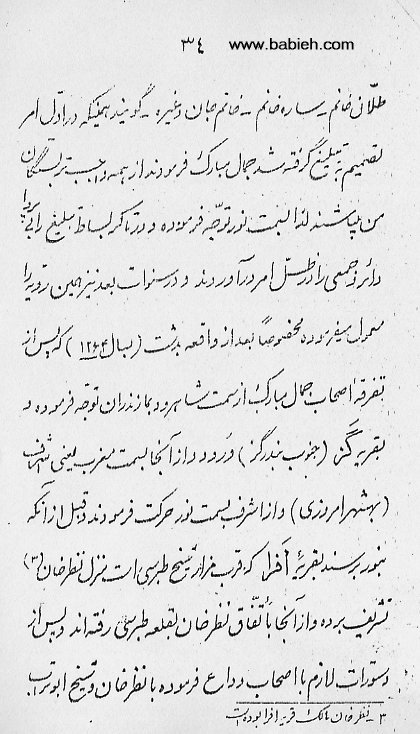 ٣٤
www.babieh.com
طلّان خانم - ساره خانم - خانم جان و غیره - گویند همینکه در اوّل امر
تصمیم به تبلیغ گرفته شد جمال مبارک فرمودند از همه واجب‌تر بستگان
من میباشند لذا بسمت نور توجّه فرموده و در تاکر بساط تبلیغ را برپا
دائر و جمعی را در ظلّ امر درآوردند و در سنوات بعد نیز همین رویّه را
معمول میفرموده مخصوصاً بعد از واقعه بدشت (بسال ١٢٦٤) که پس از
تفرقه اصحاب جمال مبارک از سمت شاهرود بمازندران توجّه فرموده و
بقریه گز (جنوب بندرگز) ورود و از آنجا بسمت مغرب یعنی اشرف
(بهشهر امروزی) و از اشرف بسمت نور حرکت فرمودند و قبل از آنکه
بنور برسند بقریهٔ اَفرا که قرب مزار شیخ طبرسی است منزل نظرخان (٣)
تشریف برده و از آنجا باتّفاق نظرخان بقلعه طبرسی رفته‌اند و پس از
دستورات لازم با اصحاب وداع فرموده با نظرخان و شیخ ابوتراب
٣ - نظرخان مالک قریه افرا بوده است